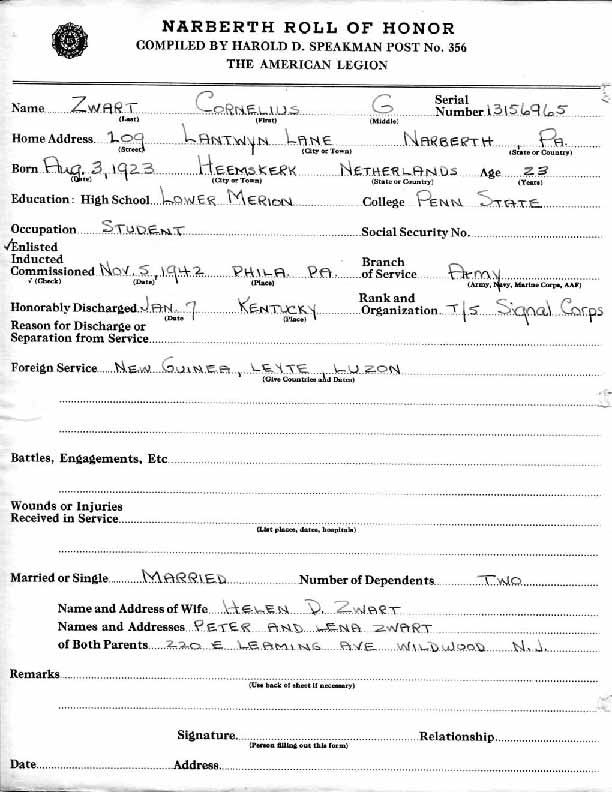 NARBERTH ROLL OF HONOR
COMPILED BY HAROLD D. SPEAKMAN POST No. 356
THE AMERICAN LEGION
Name ZWART CORNELIUS G Serial Number 13156965
(Last) (First) (Middle)
Home Address 209 LANTWYN LANE NARBERTH, PA.
(Street) (City or Town) (State or Country)
Born Aug. 3, 1923 HEEMSKERK NETHERLANDS Age 23
(Date) (City or Town) (State or Country) (Years)
Education: High School LOWER MERION College PENN STATE
Occupation STUDENT Social Security No.
✓Enlisted
Inducted Branch
Commissioned Nov. 5, 1942 PHILA. PA. of Service Army
√ (Check) (Date) (Place) (Army, Navy, Marine Corps, AAF)
Honorably Discharged JAN. 7 KENTUCKY Rank and Organization T/5 Signal Corps
(Date (Place)
Reason for Discharge or
Separation from Service
Foreign Service NEW GUINEA, LEYTE, LUZON
(Give Countries and Dates)
Battles, Engagements, Etc
Wounds or Injuries
Received in Service
(List places, dates, hospitals)
Married or Single MARRIED Number of Dependents TWO
Name and Address of Wife HELEN D. ZWART
Names and Addresses PETER AND LENA ZWART
of Both Parents 220 E LEAMING AVE WILDWOOD N.J.
Remarks
(Use back of sheet if necessary)
Signature Relationship
(Person filling out this form)
Date Address